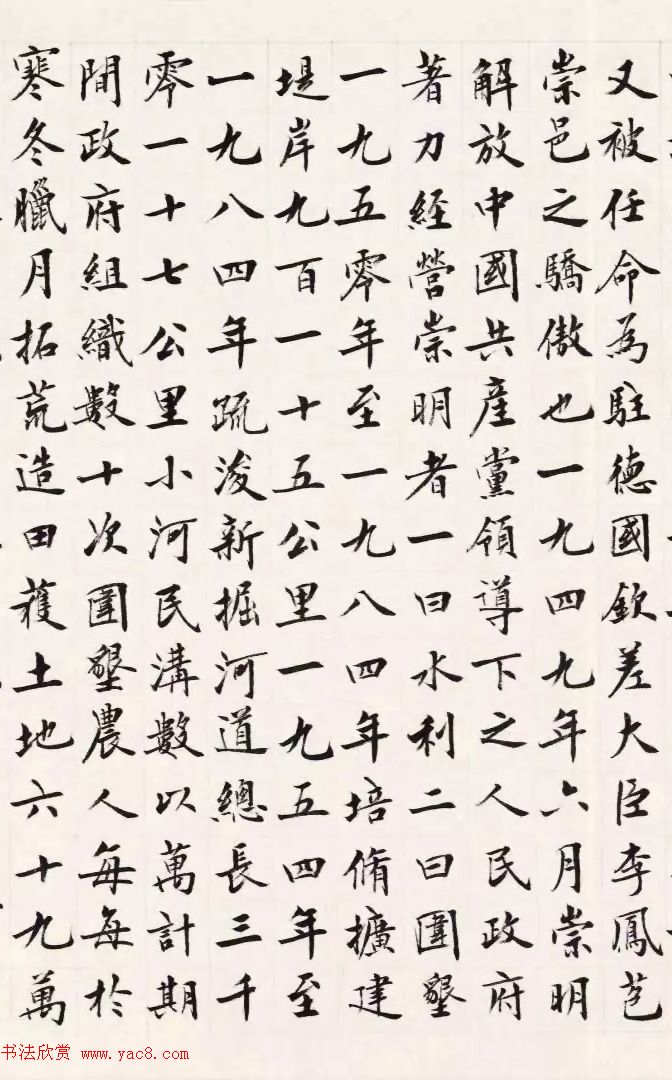 又被任命為駐德國欽差大臣李鳳苞
崇邑之驕傲也一九四九年六月崇明
解放中國共產黨領導下之人民政府
著力經營崇明者一曰水利二曰圍墾
一九五零年至一九八四年培脩擴建
堤岸九百一十五公里一九五四年至
一九八四年疏浚新掘河道總長三千
零一十七公里小河民溝數以萬計期
間政府組織數十次圍墾農人每每於
寒冬臘月拓荒造田獲土地六十九萬
书法欣赏 www.yac8.com